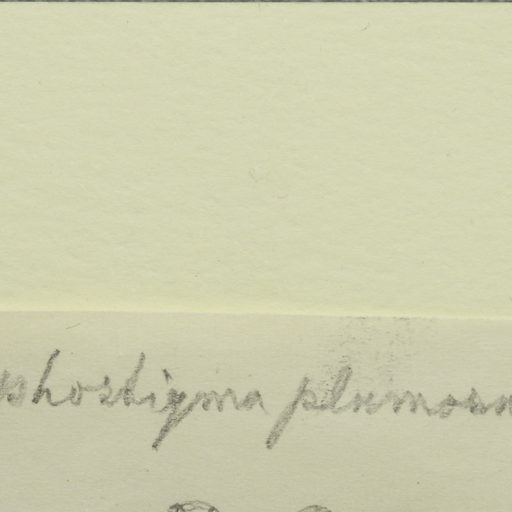 phostigma plumosu